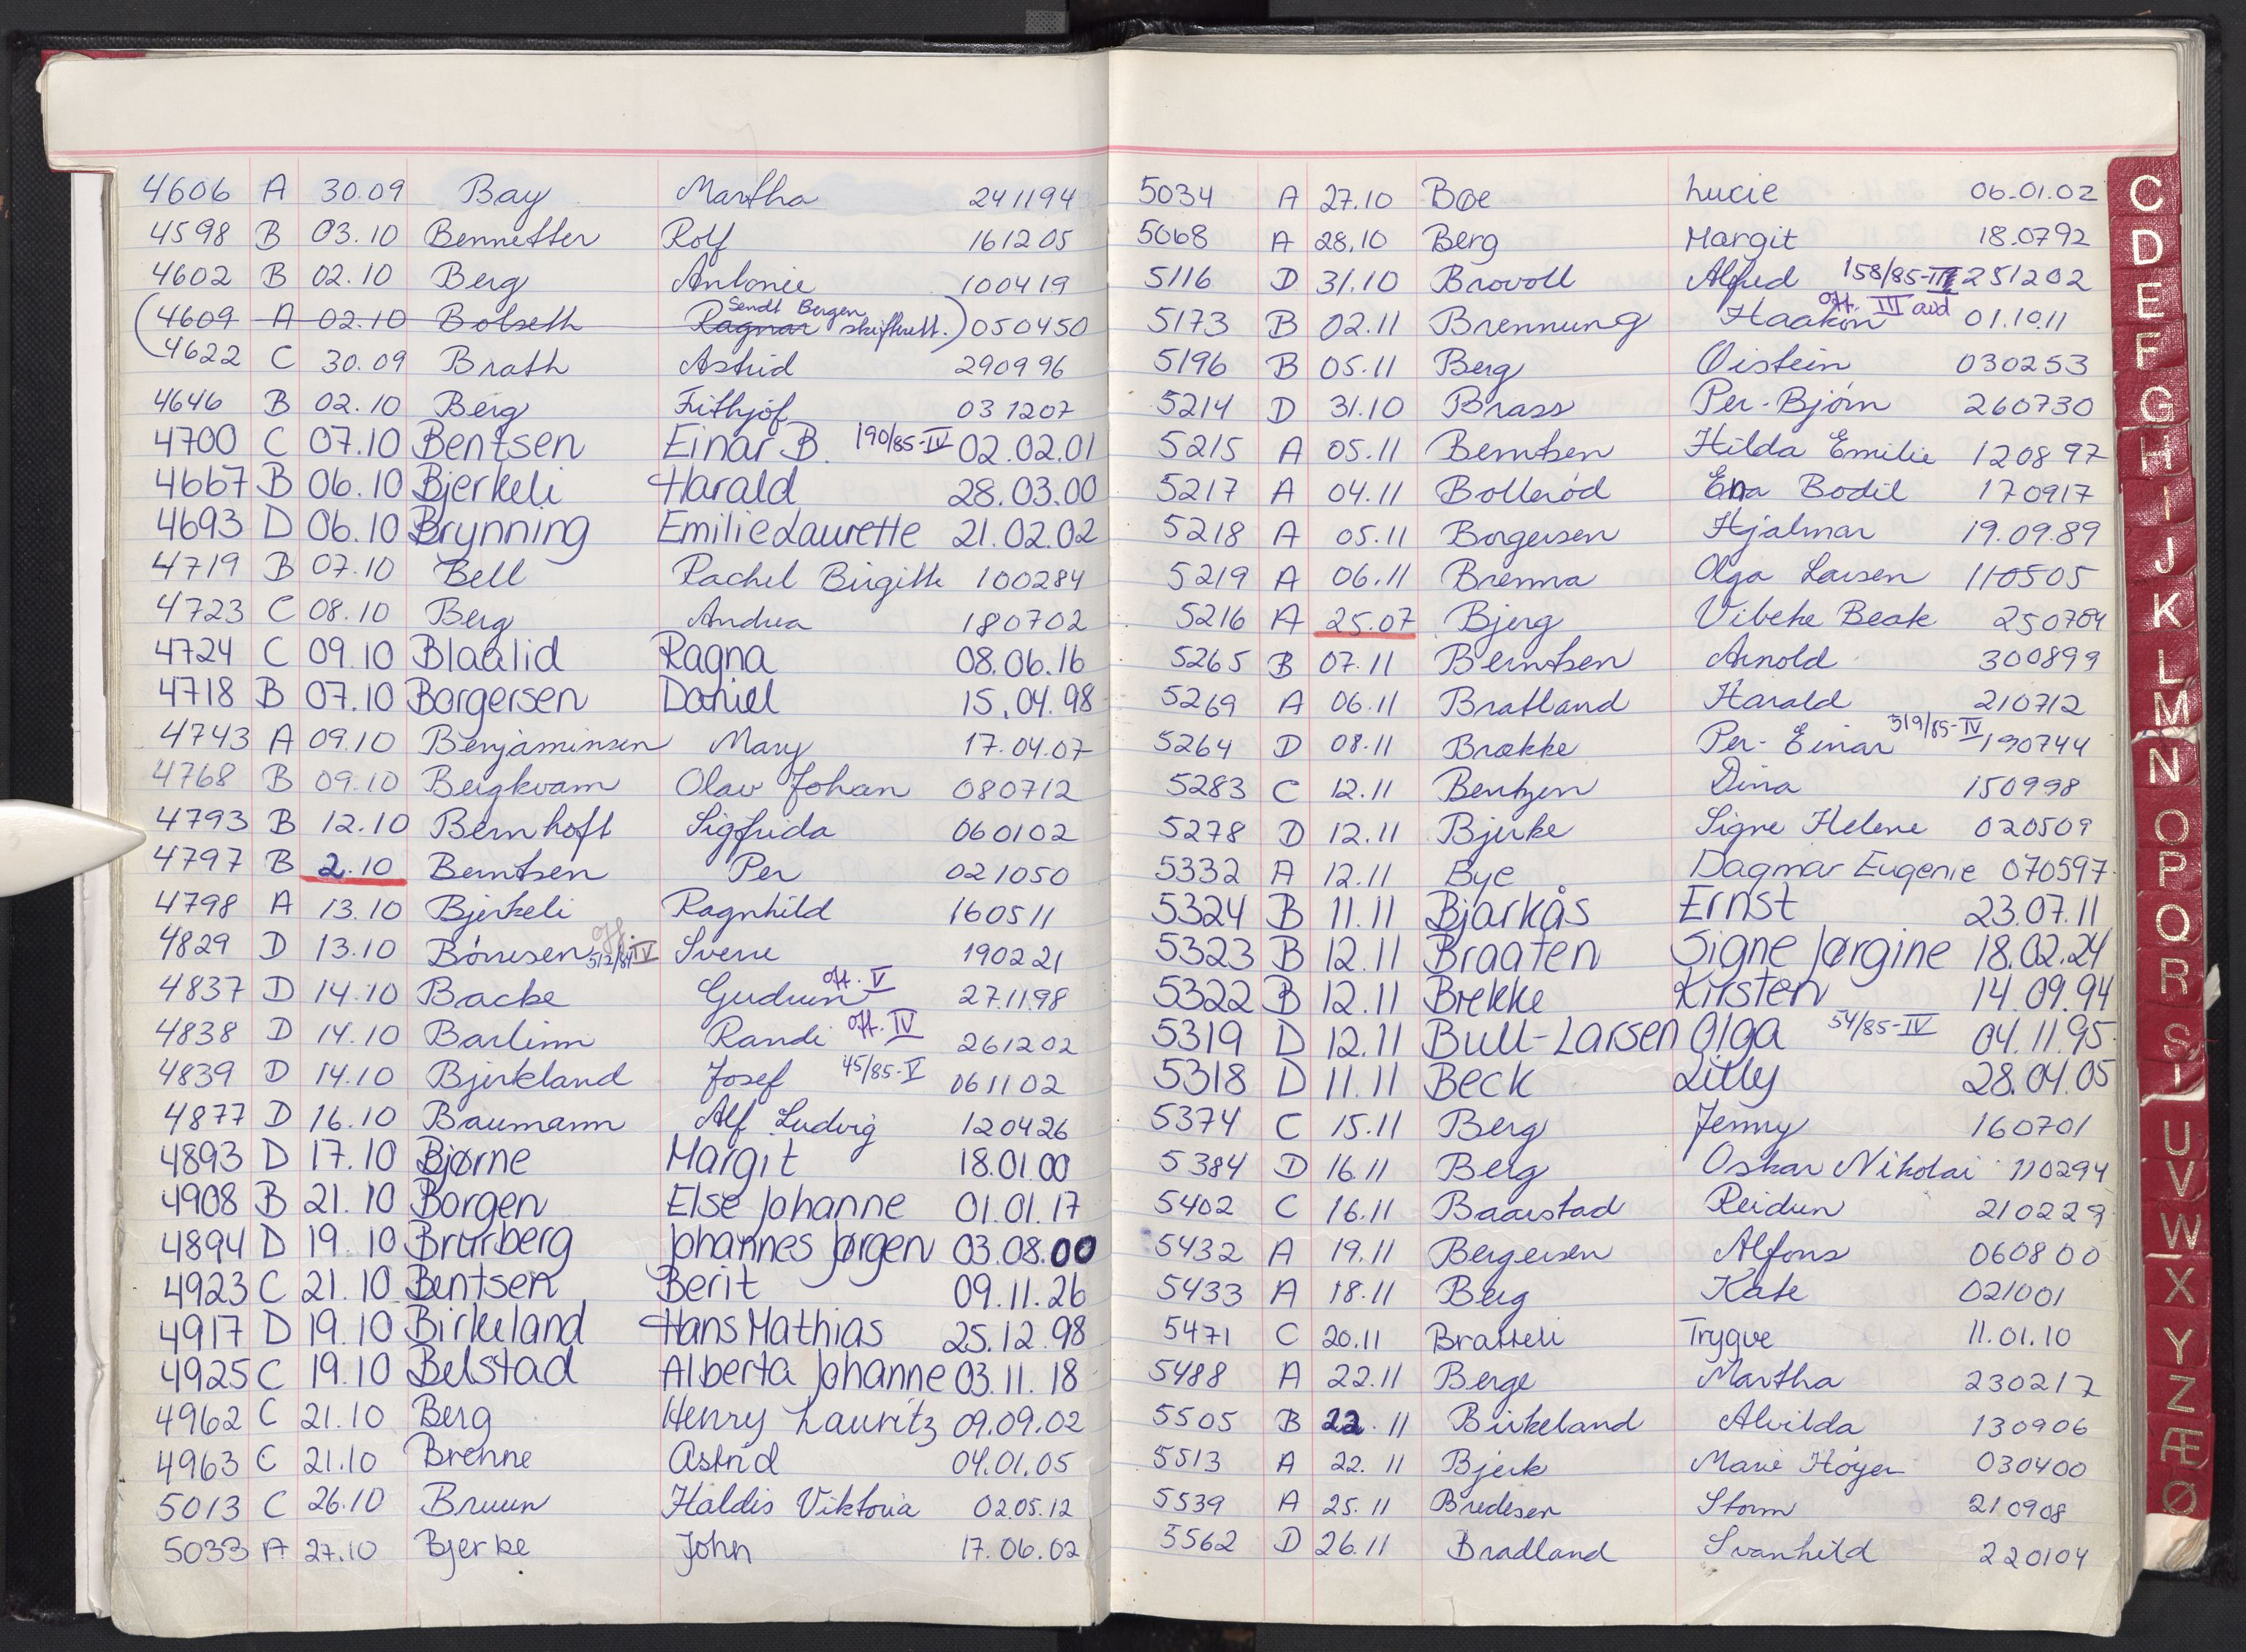 4606 A 30.09 Bay Martha 241194
4598 B 03.10 Bennetter Rolf 161205
4602 B 02.10 Berg Antonie 100419
Sendt Bergen
(4609 A 02.10 Bolseth Ragnar skifterett.) 050450
4622 C 30.09 Brath Astrid 290996
4646 B 02.10 Berg Frithjof 031207
4700 C 07.10 Bentsen Einar B. 190/85-IV 02.02.01
4667 B 06.10 Bjerkeli Harald 28.03.00
4693 D 06.10 Brynning Emilie Laurette 21.02.02
4719 B 07.10 Bell Rachel Birgitte 100284
4723 C 08.10 Berg Andrea 180702
4724 C 09.10 Blaalid Ragna 08.06.16
4718 B 07.10 Borgersen Daniel 15.04.98
4743 A 09.10 Benjaminsen Mary 17.04.07
4768 B 09.10 Bergkvam Olav Johan 080712
4793 B 12.10 Bernhoft Sigfrida 060102
4797 B 2.10 Berntsen Per 021050
4798 A 13.10 Bjerkeli Ragnhild 160511
off.
4829 D 13.10 Børresen 512/84 IV Sverre 190221
off. V
4837 D 14.10 Backe Gudrun 27.11.98
4838 D 14.10 Barlinn Randi off. IV 261202
4839 D 14.10 Bjerkeland Josef 45/85-V 061102
4877 D 16.10 Baumann Alf Ludvig 120426
4893 D 17.10 Bjørne Margit 18.01.00
4908 B 21.10 Borgen Else Johanne 01.01.17
4894 D 19.10 Brurberg Johannes Jørgen 03.08.00
4923 C 21.10 Bentsen Berit 09.11.26
4917 D 19.10 Birkeland Hans Mathias 25.12.98
4925 C 19.10 Belstad Alberta Johanne 03.11.18
4962 C 21.10 Berg Henry Lauritz 09.09.02
4963 C 21.10 Brenne Astrid 04.01.05
5013 C 26.10 Bruun Haldis Viktoria 02.05.12
5033 A 27.10 Bjerke John 17.06.02
5034 A 27.10 Bøe Lucie 06.01.02
5068 A 28.10 Berg Margit 18.0792
5116 D 31.10 Brovoll Alfred 158/85-III 251202
off. III avd
5173 B 02.11 Brennung Haakon 01.10.11
5196 B 05.11 Berg Øistein 030253
5214 D 31.10 Brass Per-Bjørn 260730
5215 A 05.11 Berntsen Hilda Emilie 120897
5217 A 04.11 Bollerød Ena Bodil 170917
5218 A 05.11 Borgersen Hjalmar 19.09.89
5219 A 06.11 Brenna Olga Larsen 110505
5216 A 25.07 Bjerg Vibeke Beate 250704
5265 B 07.11 Berntsen Arnold 300899
5269 A 06.11 Bratland Harald 210712
319/85-IV
5264 D 08.11 Brække Per-Einar 190744
5283 C 12.11 Bentzen Dina 150998
5278 D 12.11 Bjerke Signe Helene 020509
5332 A 12.11 Bye Dagmar Eugenie 070597
5324 B 11.11 Bjarkås Ernst 23.07.11
5323 B 12.11 Braaten Signe Jørgine 18.02.24
5322 B 12.11 Brekke Kirsten 14.09.94
5319 D 12.11 Bull-Larsen Olga 54/85-IV 04.11.95
5318 D 11.11 Beck Lilly 28.04.05
5374 C 15.11 Berg Jenny 160701
5384 D 16.11 Berg Oskar Nikolai 110294
5402 C 16.11 Baarstad Reidun 210229
5432 A 19.11 Bergersen Alfons 060800
5433 A 18.11 Berg Kate 021001
5471 C 20.11 Bratteli Trygve 11.01.10
5488 A 22.11 Berge Martha 230217
5505 B 22.11 Birkeland Alvilda 130906
5513 A 22.11 Bjerk Marie Høyer 030400
5539 A 25.11 Bredesen Storm 210908
5562 D 26.11 Bradland Svanhild 220104
C
D
E
F
G
H
I
J
K
L
M
N
O
P
Q
R
S
U
V
W
X
Y
Z
Æ
Ø